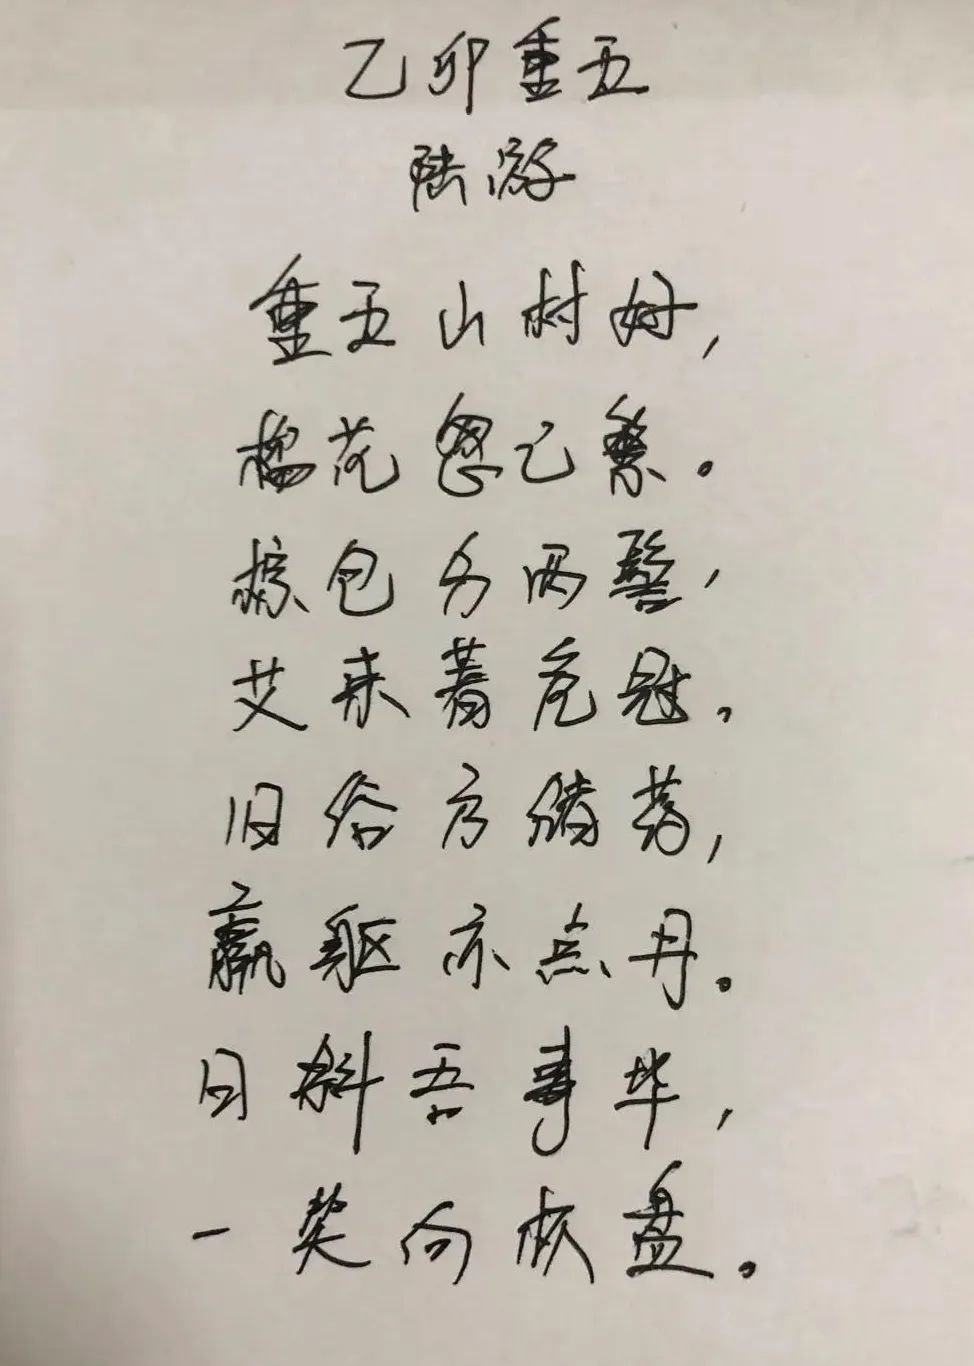 乙卯重五
陆游
重五山村好，
榴花忽已繁。
粽包分两髻，
艾束著危冠。
旧俗方储药，
羸躯亦点丹。
日斜吾事毕，
一笑向杯盘。